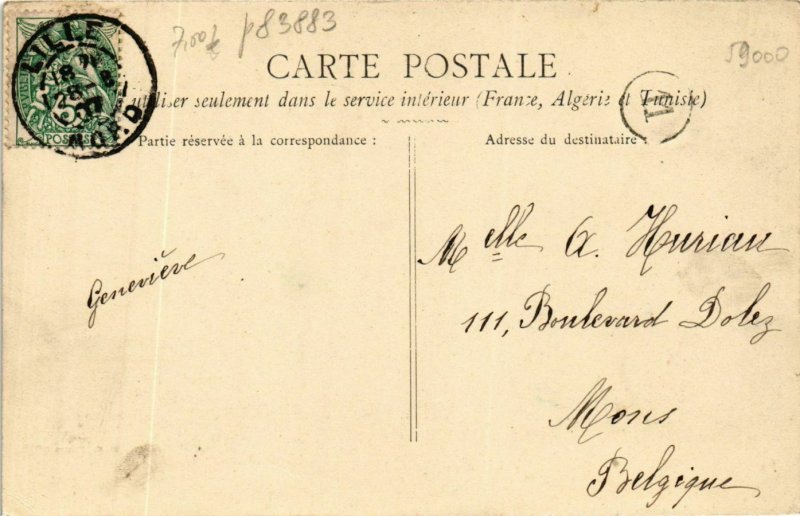 7,00€ p83883
59000
LILLE
07
NORD
CARTE POSTALE
utiliser seulement dans le service intérieur (France, Algérie et Tunisie)
Partie réservée à la correspondance :
Adresse du destinataire :
Geneviève
Melle A. Hurian
111, Boulevard Dolez
Mons
Belgique